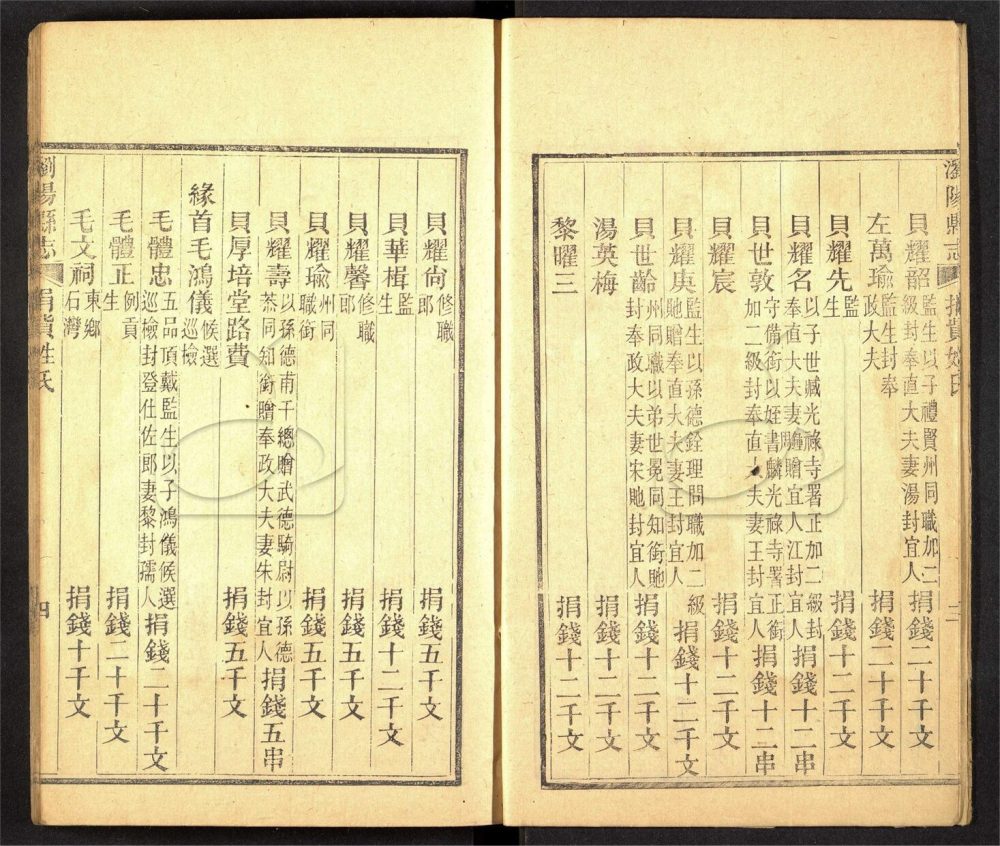 瀏陽縣志 捐貲姓氏
貝耀韶 監生以子禮賢州同職加二級封奉直大夫妻湯封宜人 捐錢二十千文
左萬瑜 監生封奉政大夫 捐錢二十千文
貝耀先 監生 捐錢十二千文
貝耀名 以子世臧光祿寺署正加二級封奉直大夫妻贈宜人江封宜人 捐錢十二串
貝世敦 守備銜以姪書麟光祿寺署正銜加二級封奉直大夫妻王封宜人 捐錢十二串
貝耀宸 捐錢十二千文
貝耀庚 監生以孫德銓理問職加二級貤贈奉直大夫妻王封宜人 捐錢十二千文
貝世齡 州同職以弟世冕同知銜貤封奉政大夫妻宋貤封宜人 捐錢十二千文
湯英梅 捐錢十二千文
黎曜三 捐錢十二千文
貝耀尙 修職郎 捐錢五千文
貝華楫 監生 捐錢十二千文
貝耀馨 修職郎 捐錢五千文
貝耀瑜 州同職銜 捐錢五千文
貝耀壽 以孫德甫千總贈武德騎尉以孫德恭同知銜贈奉政大夫妻朱封宜人 捐錢五串
貝厚培堂路費 捐錢五千文
緣首毛鴻儀 候選巡檢
毛體忠 五品頂戴監生以子鴻儀候選巡檢封登仕佐郎妻黎封孺人 捐錢二十千文
毛體正 例貢生 捐錢二十千文
毛文祠 東鄉石灣 捐錢十千文
瀏陽縣志 捐貲姓氏 四